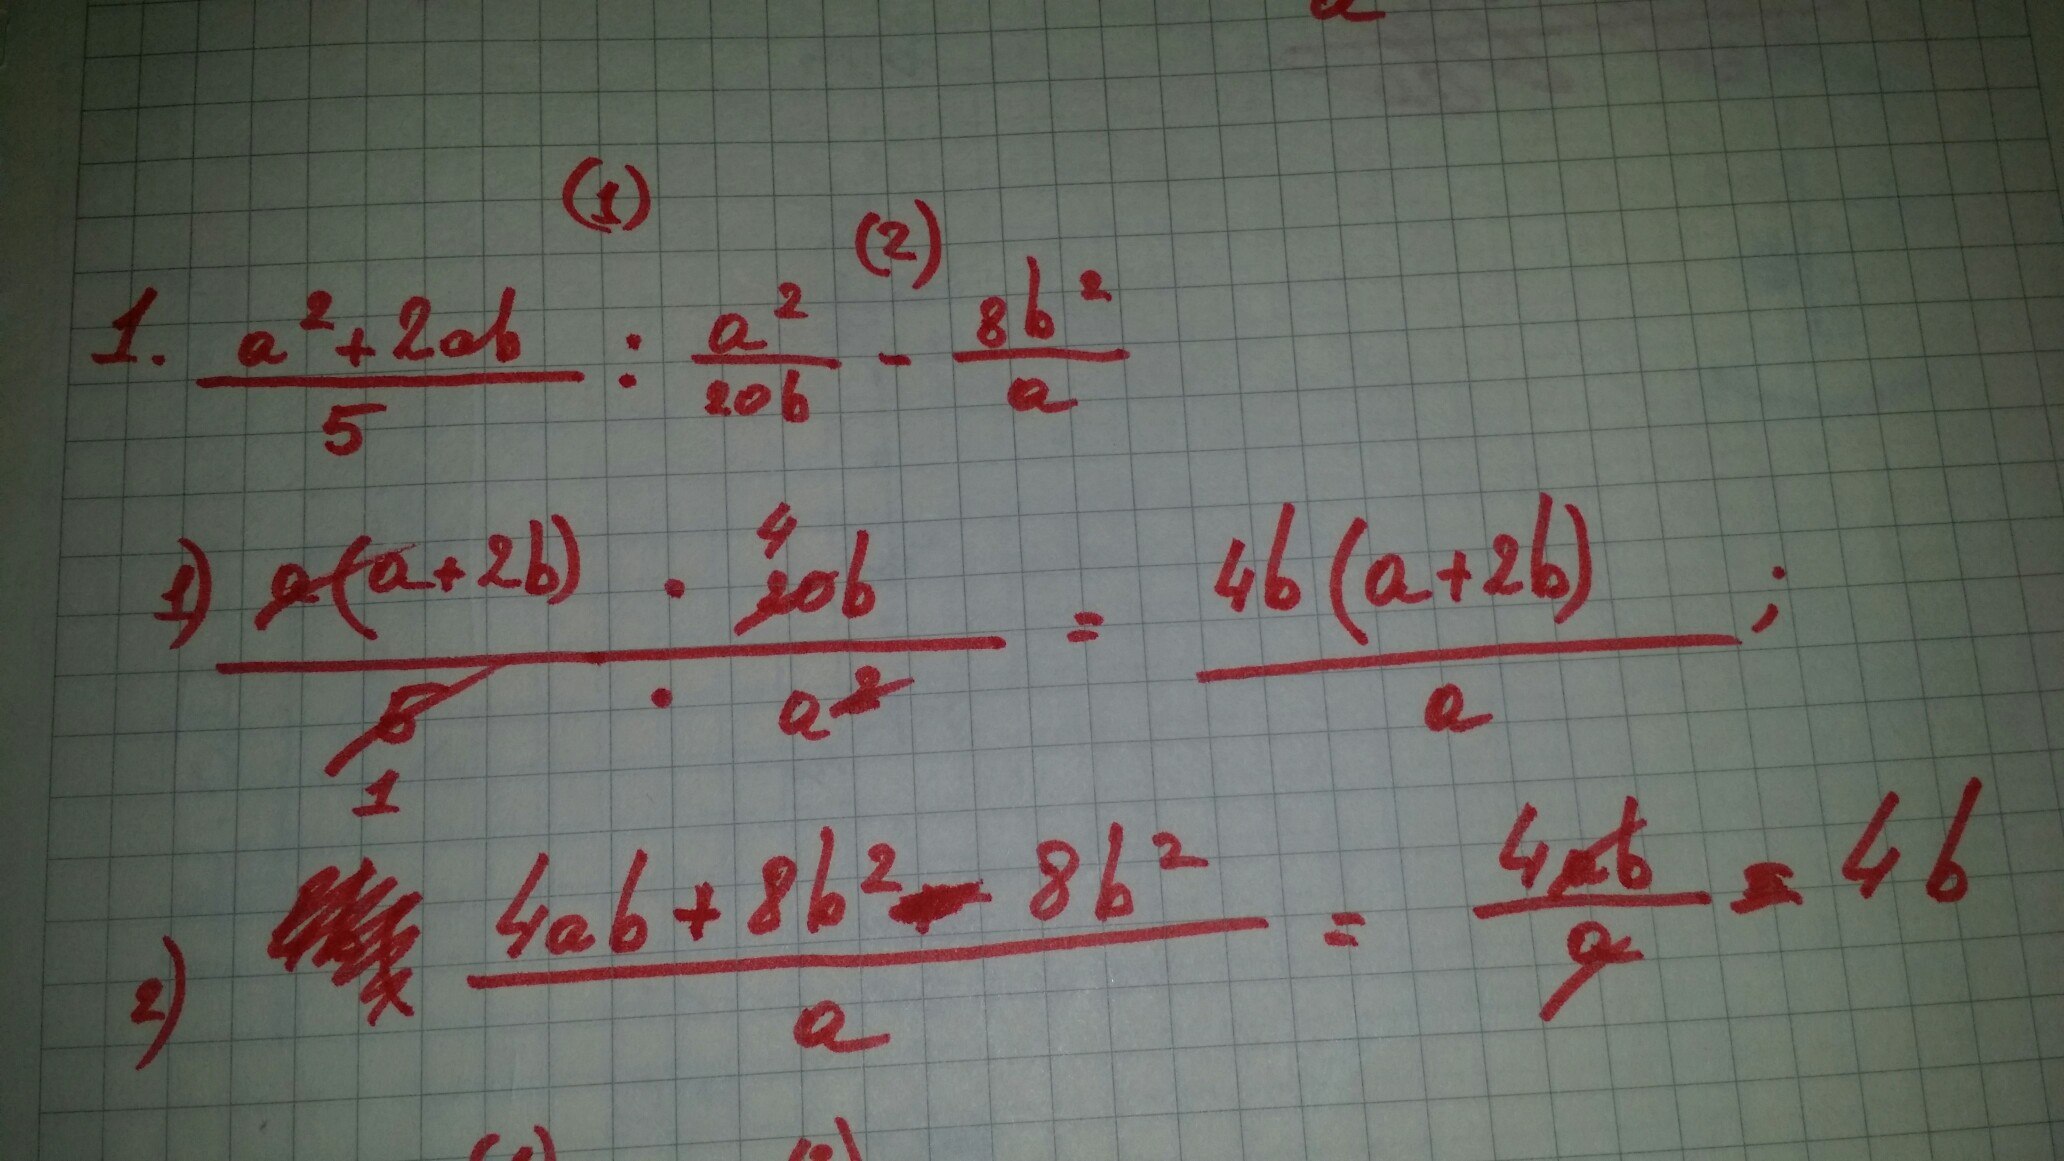 (1) (2)
1. (a² + 2ab)/5 : a²/20b - 8b²/a
1) (a(a + 2b) · 20b)/(5 · a²) = 4b(a + 2b)/a ;
4
1
2) (4ab + 8b² - 8b²)/a = 4ab/a = 4b